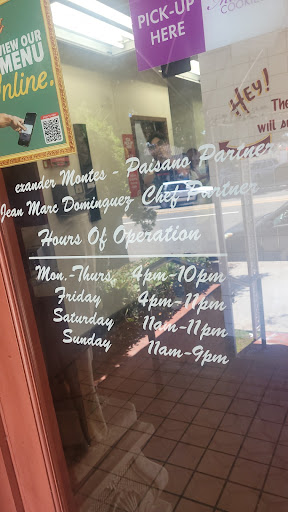 VIEW OUR
MENU
Online.
PICK-UP
HERE
COOKIE
HEY!
The
will a
exander Montes - Paisano Partner
Jean Marc Dominguez Chef Partner
Hours Of Operation
Mon.-Thurs. 4pm-10pm
Friday 4pm-11pm
Saturday 11am-11pm
Sunday 11am-9pm